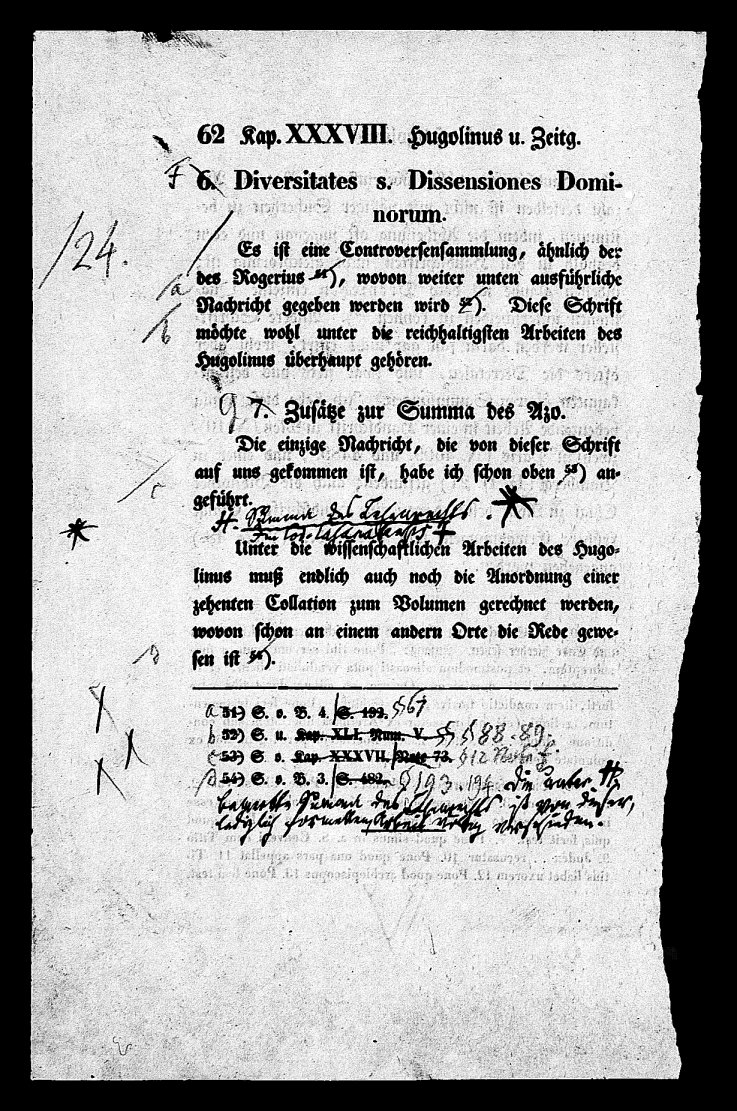 62 Kap. XXXVIII. Hugolinus u. Zeitg.
F 6. Diversitates s. Dissensiones Domi-
norum.
124.
Es ist eine Controversensammlung, ähnlich der
des Rogerius 51), wovon weiter unten ausführliche
a
Nachricht gegeben werden wird 52). Diese Schrift
b
möchte wohl unter die reichhaltigsten Arbeiten des
Hugolinus überhaupt gehören.
g 7. Zusätze zur Summa des Azo.
Die einzige Nachricht, die von dieser Schrift
auf uns gekommen ist, habe ich schon oben 53) an-
c
geführt.
H. Summa des Lehenrechts.
Unter die wissenschaftlichen Arbeiten des Hugo-
linus muß endlich auch noch die Anordnung einer
zehenten Collation zum Volumen gerechnet werden,
wovon schon an einem andern Orte die Rede gewe-
sen ist 54).
a 51) S. o. B. 4. S. 193. § 67
b 52) S. u. Kap. XLI. Num. V. §§ 88-89.
c 53) S. o. Kap. XXXVII. Note 73. § 12
d 54) S. o. B. 3. S. 483. § 193-194 Die unter H
Summa des Lehenrechts ist von dieser,
lediglich formellen Arbeit verschieden.